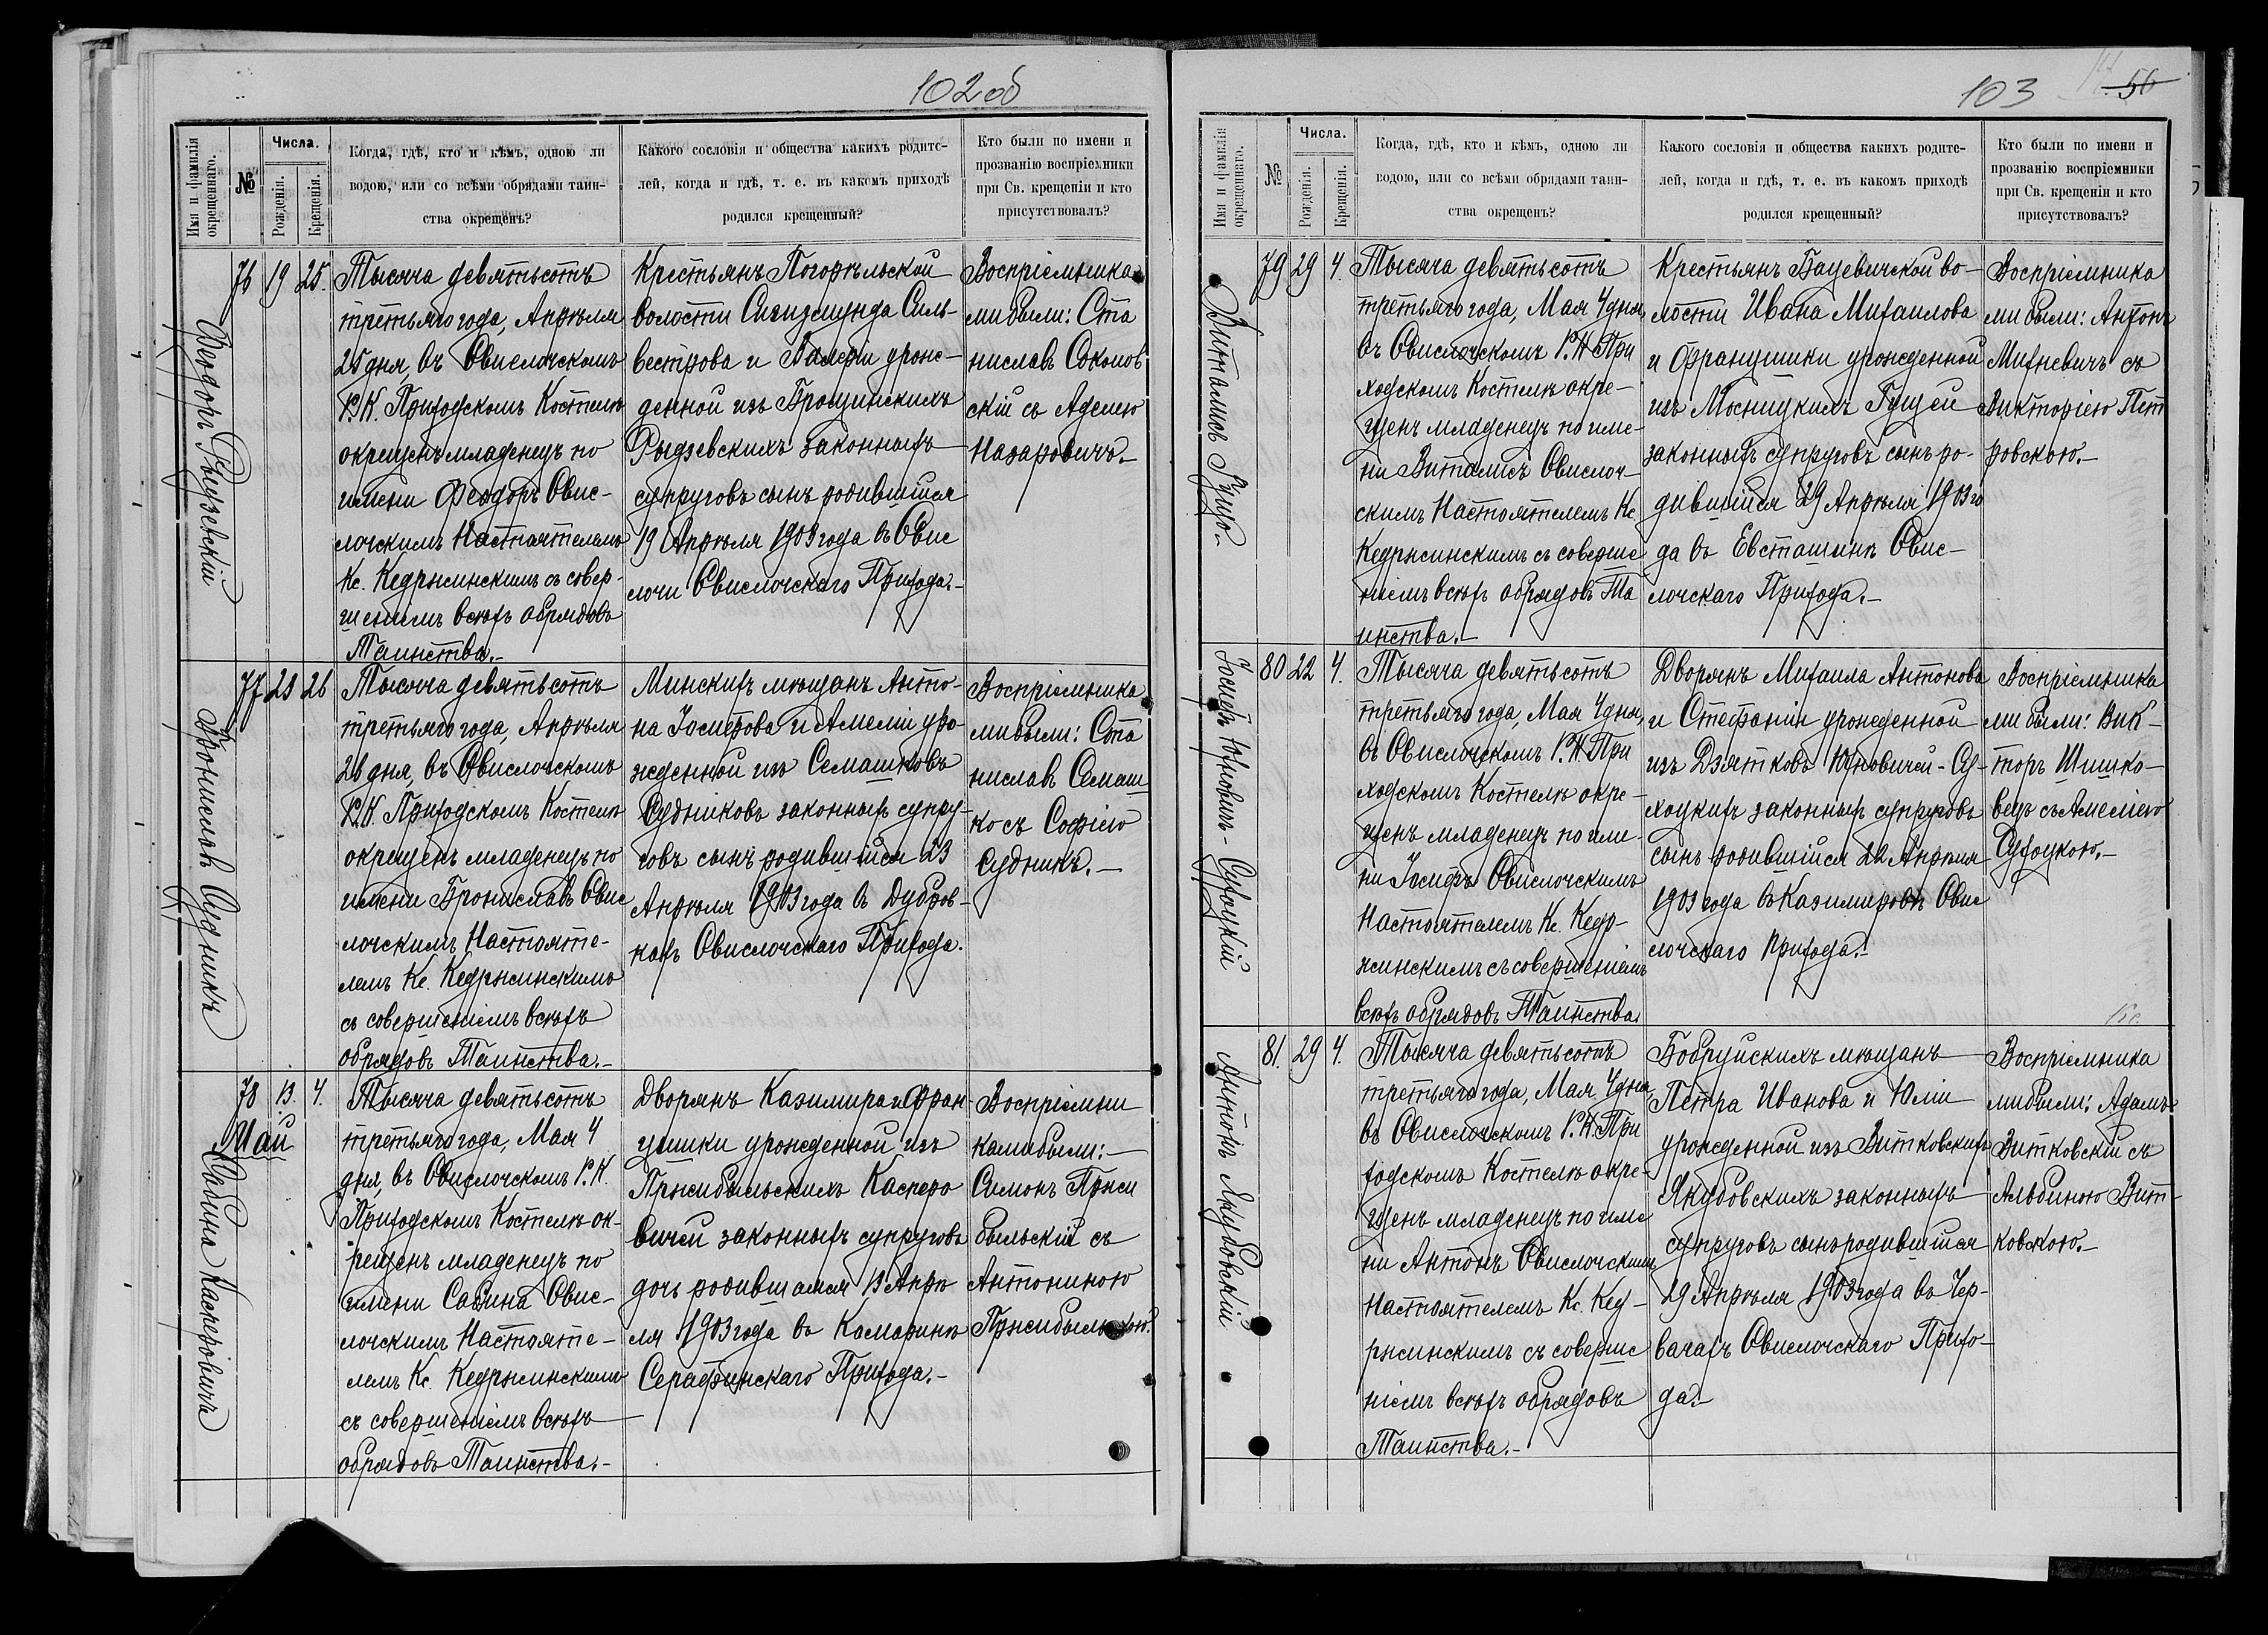 102 об
Имя и фамилія окрещеннаго.
№
Числа.
Рожденія.
Крещенія.
Когда, гдѣ, кто и кѣмъ, одною ли
водою, или со всѣми обрядами таин-
ства окрещенъ?
Какого сословія и общества какихъ родите-
лей, когда и гдѣ, т. е. въ какомъ приходѣ
родился крещенный?
Кто были по имени и
прозванію воспріемники
при Св. крещеніи и кто
присутствовалъ?
Ѳеодоръ Рыдзевскій
76 19 25.
Тысяча девятьсотъ
третьяго года, Апрѣля
25 дня, въ Свислочскомъ
Р.К. Приходскомъ Костелѣ
окрещенъ младенецъ по
имени Ѳеодоръ Свис-
лочскимъ Настоятелемъ
Кс. Кедржинскимъ съ совер-
шеніемъ всѣхъ обрядовъ
Таинства.-
Крестьянъ Погорѣльской
волости Сигизмунда Силь-
вестрова и Валеріи урож-
денной изъ Брощинскихъ
Рыдзевскихъ законныхъ
супруговъ сынъ родившійся
19 Апрѣля 1903 года въ Свис
лочи Свислочскаго Прихода.-
Воспріемника
ми были: Ста
ниславъ Соколов
скій съ Аделею
Назаровичъ.-
Брониславъ Судникъ
77 23 26
Тысяча девятьсотъ
третьяго года, Апрѣля
26 дня, въ Свислочскомъ
Р.К. Приходскомъ Костелѣ
окрещенъ младенецъ по
имени Брониславъ Свис
лочскимъ Настояте-
лемъ Кс. Кедржинскимъ
съ совершеніемъ всѣхъ
обрядовъ Таинства.-
Минскихъ мѣщанъ Анто-
на Іосифова и Амеліи уро-
жденной изъ Семашковъ
Судниковъ законныхъ супру-
говъ сынъ родившійся 23
Апрѣля 1903 года въ Дубров-
кахъ Свислочскаго Прихода.
Воспріемника
ми были: Ста
ниславъ Семаш
ко съ Софіею
Судникъ.-
Сабина Касперовичъ
78 13. 4.
Май
Тысяча девятьсотъ
третьяго года, Мая 4
дня, въ Свислочскомъ Р.К.
Приходскомъ Костелѣ ок-
рещенъ младенецъ по
имени Сабина Свис-
лочскимъ Настояте-
лемъ Кс. Кедржинскимъ
съ совершеніемъ всѣхъ
обрядовъ Таинства.-
Дворянъ Казимира и Фран-
цишки урожденной изъ
Пржибыльскихъ Касперо
вичей законныхъ супруговъ
дочь родившаяся 13 Апрѣ
ля 1903 года въ Камаринѣ
Серафинскаго Прихода.-
Воспріемни
ками были:-
Симонъ Пржи
быльскій съ
Антониною
Пржибыльскою.
103
56
Имя и фамилія окрещеннаго.
№
Числа.
Рожденія.
Крещенія.
Когда, гдѣ, кто и кѣмъ, одною ли
водою, или со всѣми обрядами таин-
ства окрещенъ?
Какого сословія и общества какихъ родите-
лей, когда и гдѣ, т. е. въ какомъ приходѣ
родился крещенный?
Кто были по имени и
прозванію воспріемники
при Св. крещеніи и кто
присутствовалъ?
Витались Гущо.
79 29 4.
Тысяча девятьсотъ
третьяго года, Мая 4 дня,
въ Свислочскомъ Р.К. При
ходскомъ Костелѣ окре-
щенъ младенецъ по име-
ни Виталисъ Свислоч-
скимъ Настоятелемъ Кс
Кедржинскимъ съ соверше
ніемъ всѣхъ обрядовъ Та
инства.-
Крестьянъ Бацевичской во-
лости Ивана Михаилова
и Францишки урожденной
изъ Мосницкихъ Гущей
законныхъ супруговъ сынъ ро-
дившійся 29 Апрѣля 1903 го
да въ Евсташинѣ Свис-
лочскаго Прихода.-
Воспріемника
ми были: Антонъ
Михневичъ съ
Викторіею Пет
ровскою.-
Іосифъ Юхновичъ-Сухоцкій
80 22 4.
Тысяча девятьсотъ
третьяго года, Мая 4 дня,
въ Свислочскомъ Р.К. При
ходскомъ Костелѣ окре-
щенъ младенецъ по име-
ни Іосифъ Свислочскимъ
Настоятелемъ Кс. Кедр-
жинскимъ съ совершеніемъ
всѣхъ обрядовъ Таинства.
Дворянъ Михаила Антонова
и Стефаніи урожденной
изъ Дзятковъ Юхновичей-Су-
хоцкихъ законныхъ супруговъ
сынъ родившійся 22 Апрѣля
1903 года въ Казимировѣ Свис
лочскаго Прихода.-
Воспріемника
ми были: Вик-
торъ Шишко-
вецъ съ Амеліею
Сухоцкою.-
Антонъ Якубовскій
81. 29 4.
Тысяча девятьсотъ
третьяго года, Мая 4 дня,
въ Свислочскомъ Р.К. При
ходскомъ Костелѣ окре-
щенъ младенецъ по име
ни Антонъ Свислочскимъ
Настоятелемъ Кс. Кед-
ржинскимъ съ соверше
ніемъ всѣхъ обрядовъ
Таинства.-
Бобруйскихъ мѣщанъ
Петра Иванова и Юліи
урожденной изъ Витковскихъ
Якубовскихъ законныхъ
супруговъ сынъ родившійся
29 Апрѣля 1903 года въ Чер-
вачахъ Свислочскаго Прихо-
да.-
Воспріемника
ми были: Адамъ
Витковскій съ
Альбиною Вит-
ковскою.-